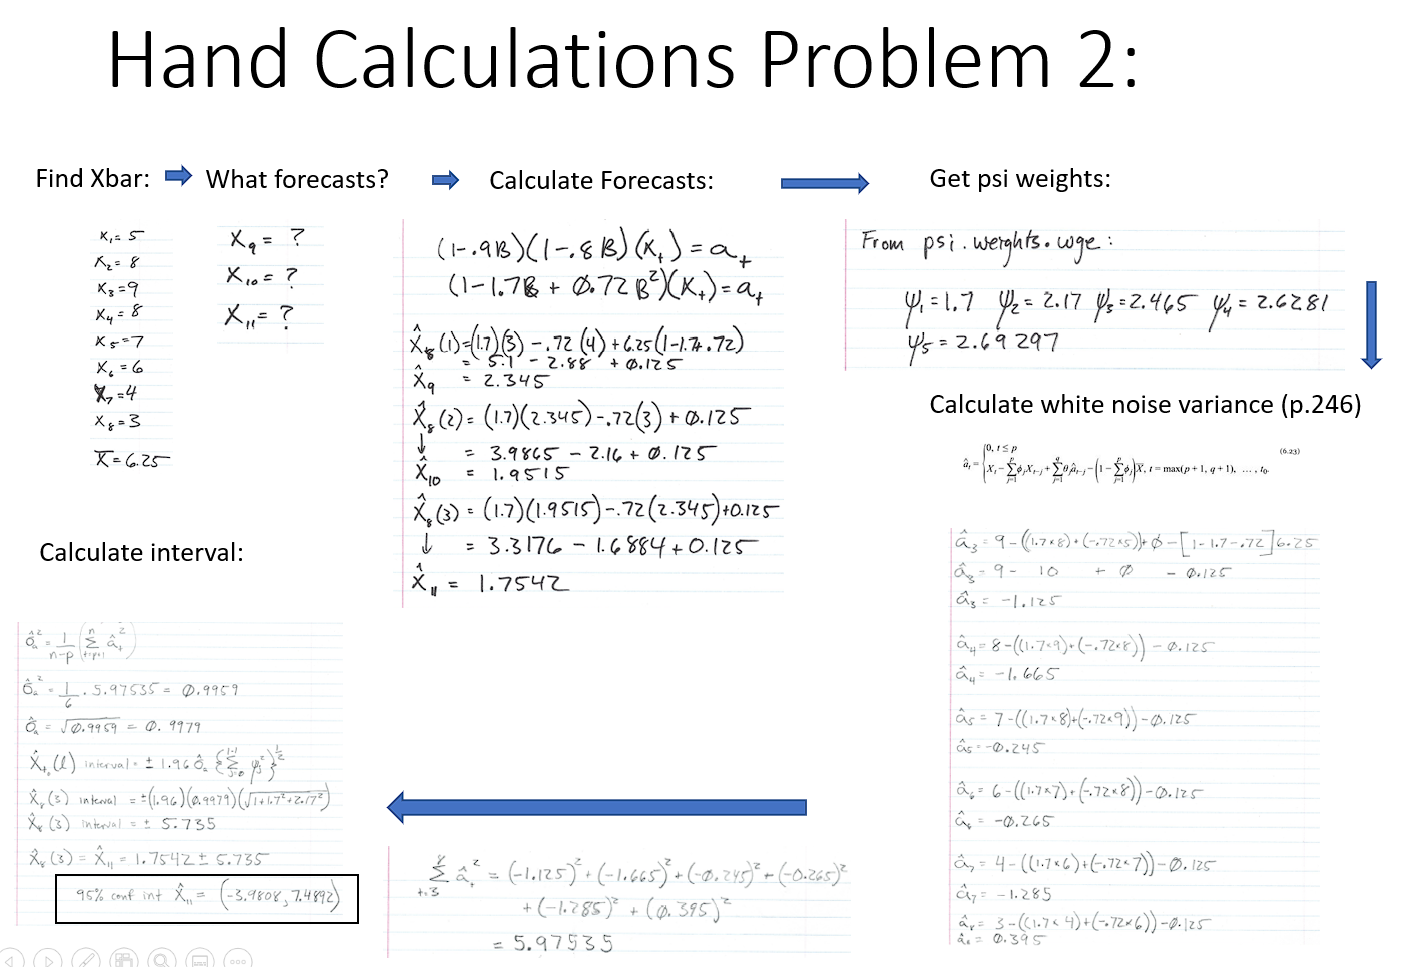 Hand Calculations Problem 2:
Find Xbar:
What forecasts?
Calculate Forecasts:
Get psi weights:
X₁ = 5
X₂ = 8
X₃ = 9
X₄ = 8
X₅ = 7
X₆ = 6
X₇ = 4
X₈ = 3
X̄ = 6.25
X₉ = ?
X₁₀ = ?
X₁₁ = ?
(1-.9B)(1-.8B)(Xₜ) = aₜ
(1-1.7B + 0.72B²)(Xₜ) = aₜ
X̂₈(1) = (1.7)(3) - .72(4) + 6.25(1-1.7+.72)
= 5.1 - 2.88 + 0.125
X̂₉ = 2.345
X̂₈(2) = (1.7)(2.345) - .72(3) + 0.125
↓ = 3.9865 - 2.16 + 0.125
X̂₁₀ = 1.9515
X̂₈(3) = (1.7)(1.9515) - .72(2.345) + 0.125
↓ = 3.3176 - 1.6884 + 0.125
X̂₁₁ = 1.7542
From psi.weights.wge:
ψ₁ = 1.7 ψ₂ = 2.17 ψ₃ = 2.465 ψ₄ = 2.6281
ψ₅ = 2.69297
Calculate white noise variance (p.246)
âₜ = {0, t ≤ p
Xₜ - Σⱼ₌₁ᵖ φⱼXₜ₋ⱼ + Σⱼ₌₁ᑫ θⱼâₜ₋ⱼ - (1 - Σⱼ₌₁ᵖ φⱼ)X̄, t = max(p + 1, q + 1), ..., t₀. (6.23)
â₃ = 9 - ((1.7×8)+(-.72×5)) + 0 - [1-1.7-.72]6.25
â₃ = 9 - 10 + 0 - 0.125
â₃ = -1.125
â₄ = 8 - ((1.7×9)+(-.72×8)) - 0.125
â₄ = -1.665
â₅ = 7 - ((1.7×8)+(-.72×9)) - 0.125
â₅ = -0.245
â₆ = 6 - ((1.7×7)+(-.72×8)) - 0.125
â₆ = -0.265
â₇ = 4 - ((1.7×6)+(-.72×7)) - 0.125
â₇ = -1.285
â₈ = 3 - ((1.7×4)+(-.72×6)) - 0.125
â₈ = 0.395
Σₜ₌₃⁸ âₜ² = (-1.125)² + (-1.665)² + (-0.245)² + (-0.265)²
+ (-1.285)² + (0.395)²
= 5.97535
Calculate interval:
σ̂ₐ² = 1/(n-p) (Σₜ₌ₚ₊₁ⁿ âₜ²)
σ̂ₐ² = 1/6 · 5.97535 = 0.9959
σ̂ₐ = √0.9959 = 0.9979
X̂ₜ₀(l) interval = ± 1.96 σ̂ₐ {Σⱼ₌₀ˡ⁻¹ ψⱼ²}^½
X̂₈(3) interval = ±(1.96)(0.9979)(√1+1.7²+2.17²)
X̂₈(3) interval = ± 5.735
X̂₈(3) = X̂₁₁ = 1.7542 ± 5.735
95% conf int X̂₁₁ = (-3.9808, 7.4892)